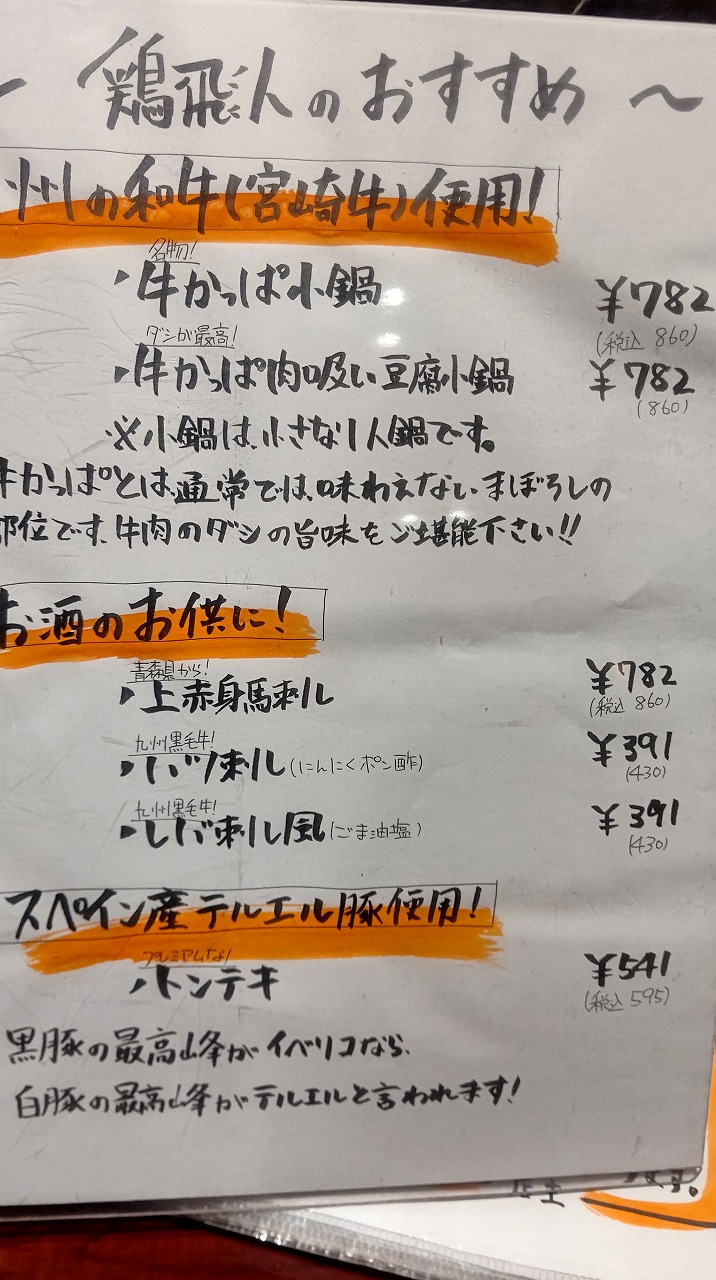 ~ 鶏飛人のおすすめ ~
州の和牛(宮崎牛)使用!
名物!
・牛かっぱ小鍋 ¥782
(税込 860)
ダシが最高!
・牛かっぱ肉吸い豆腐小鍋 ¥782
(860)
※小鍋は、小さな1人鍋です。
牛かっぱとは、通常では、味わえないまぼろしの
部位です。牛肉のダシの旨味をご堪能下さい!!
お酒のお供に!
青森県から!
・上赤身馬刺し ¥782
(税込 860)
九州黒毛牛!
・ハツ刺し(にんにくポン酢) ¥391
(430)
九州黒毛牛!
・レバ刺し風(ごま油塩) ¥391
(430)
スペイン産テルエル豚使用!
プレミアムな!
・トンテキ ¥541
(税込 595)
黒豚の最高峰がイベリコなら、
白豚の最高峰がテルエルと言われます!